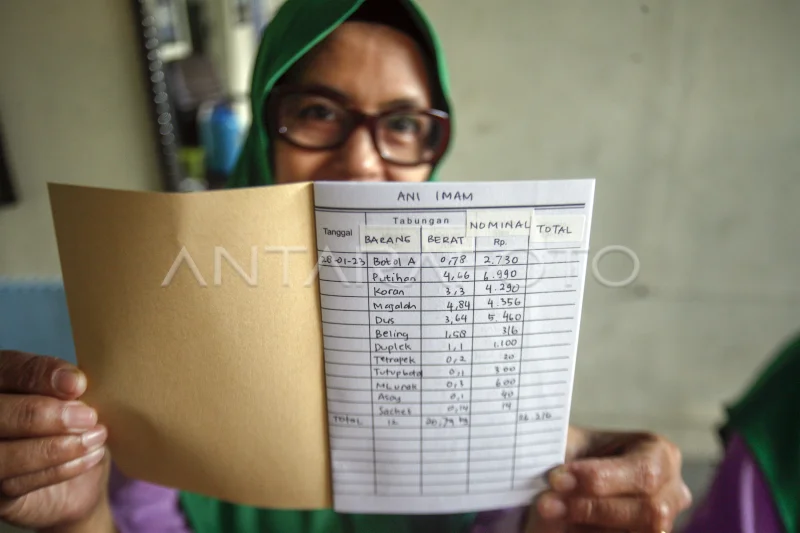 ANI IMAM
Tanggal Tabungan NOMINAL TOTAL
BARANG BERAT Rp.
28-01-23 Botol A 0,78 2.730
Putihan 4,66 6.990
Koran 3,3 4.290
Majalah 4,84 4.356
Dus 3,64 5.460
Beling 1,58 316
Duplek 1,1 1.100
Tetrapek 0,2 20
Tutup botol 0,1 300
M Lunak 0,3 600
Asoy 0,1 40
Sachet 0,14 14
Total 12
ANTARA FOTO